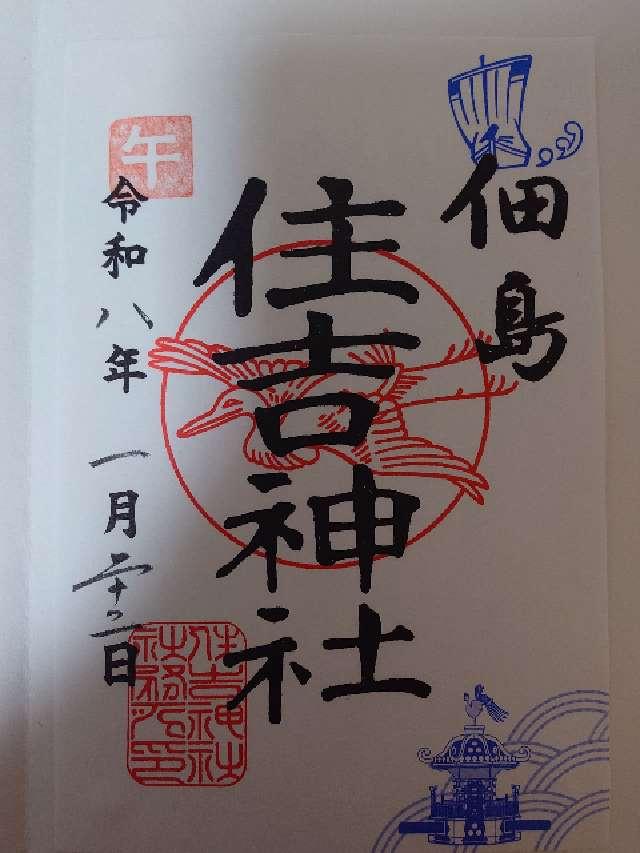 佃島
住吉神社
午
令和八年 一月二十二日
住吉神社
社務所印